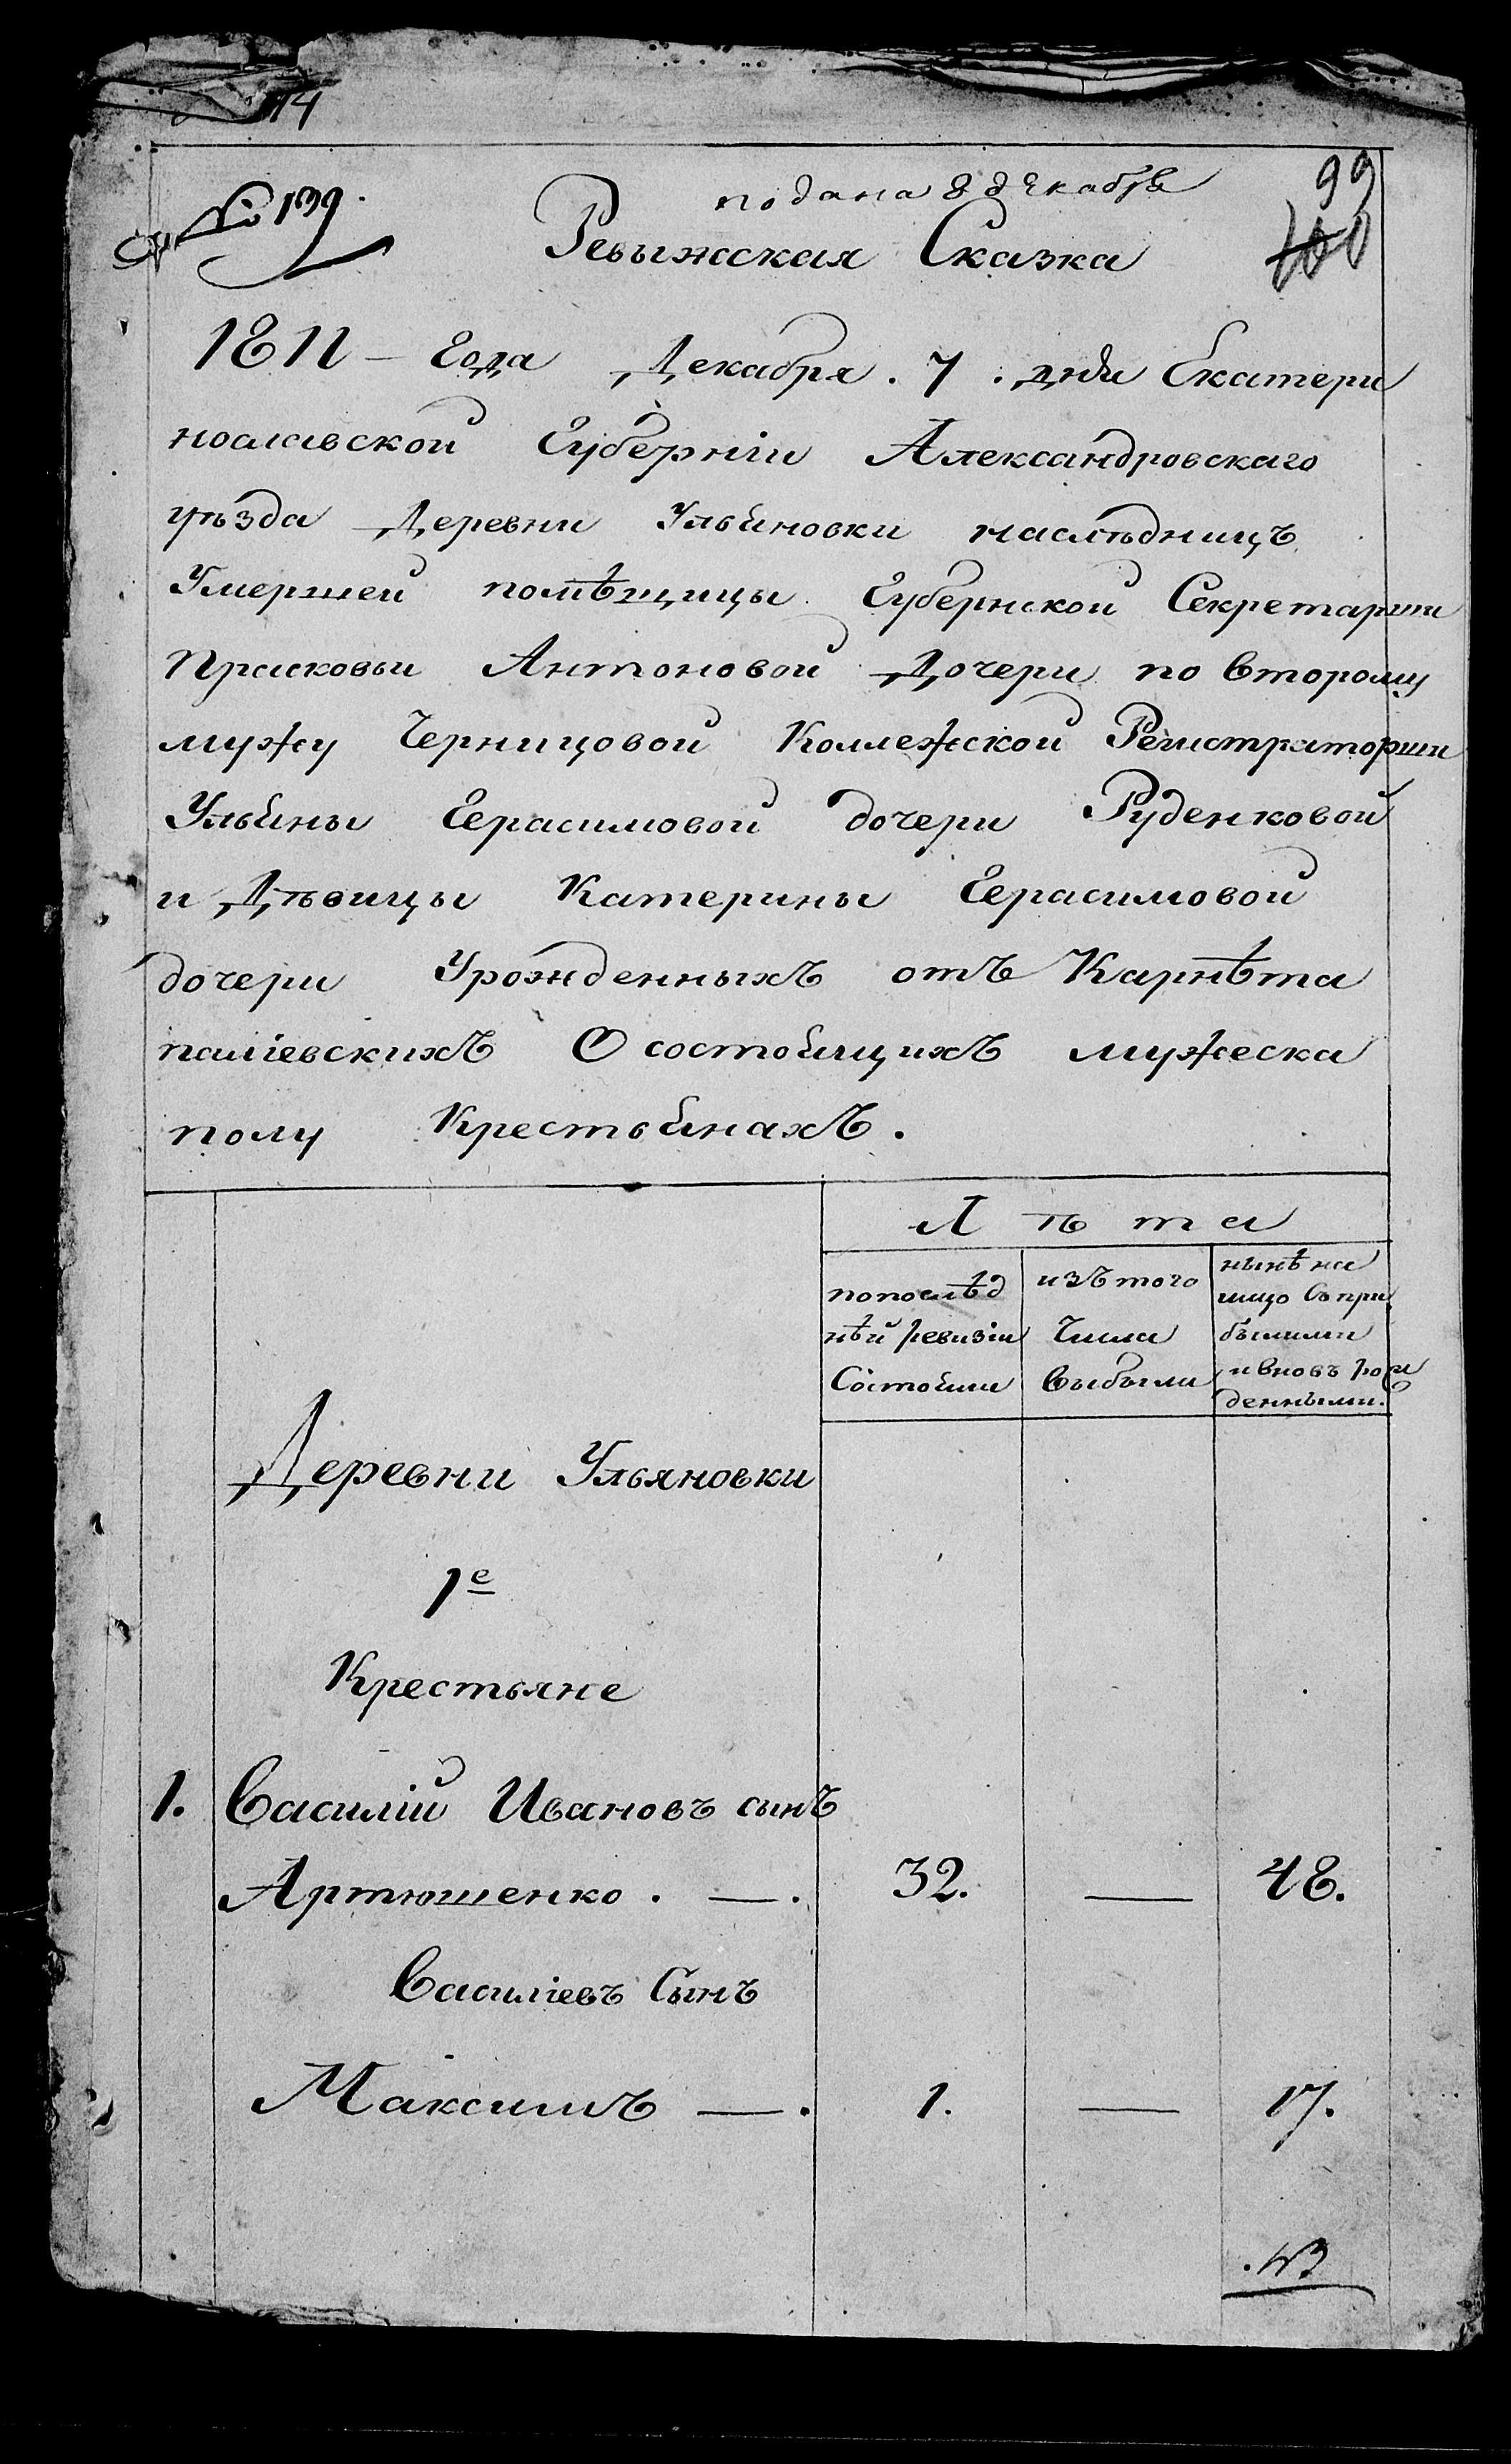 114
№ 139.
подана 8 декабря
99
100
Ревыжская Сказка
1811 – Года Декабря. 7. дня Екатери
нославской Губерніи Александровскаго
уѣзда Деревни Ульяновки наслѣдницъ
Умершей помѣщицы Губернской Секретарши
Прасковьи Антоновой Дочери по второму
мужу Черницовой Коллежской Регистраторши
Ульяны Герасимовой дочери Руденковой
и Дѣвицы Катерины Герасимовой
дочери Урожденныхъ отъ Карнѣта
паліевскихъ О состоящихъ мужеска
полу Крестьянахъ.
Лѣта
попослѣд
нѣй ревизіи
Состояли
изъ того
Числа
выбыли
нынѣ на
лицо съ при
былыми
и вновь рож
денными.
Деревни Ульяновки
1е
Крестьяне
1. Василій Ивановъ сынъ
Артюшенко. —. 32. — 48.
Василіевъ Сынъ
Максимъ —. 1. — 17.